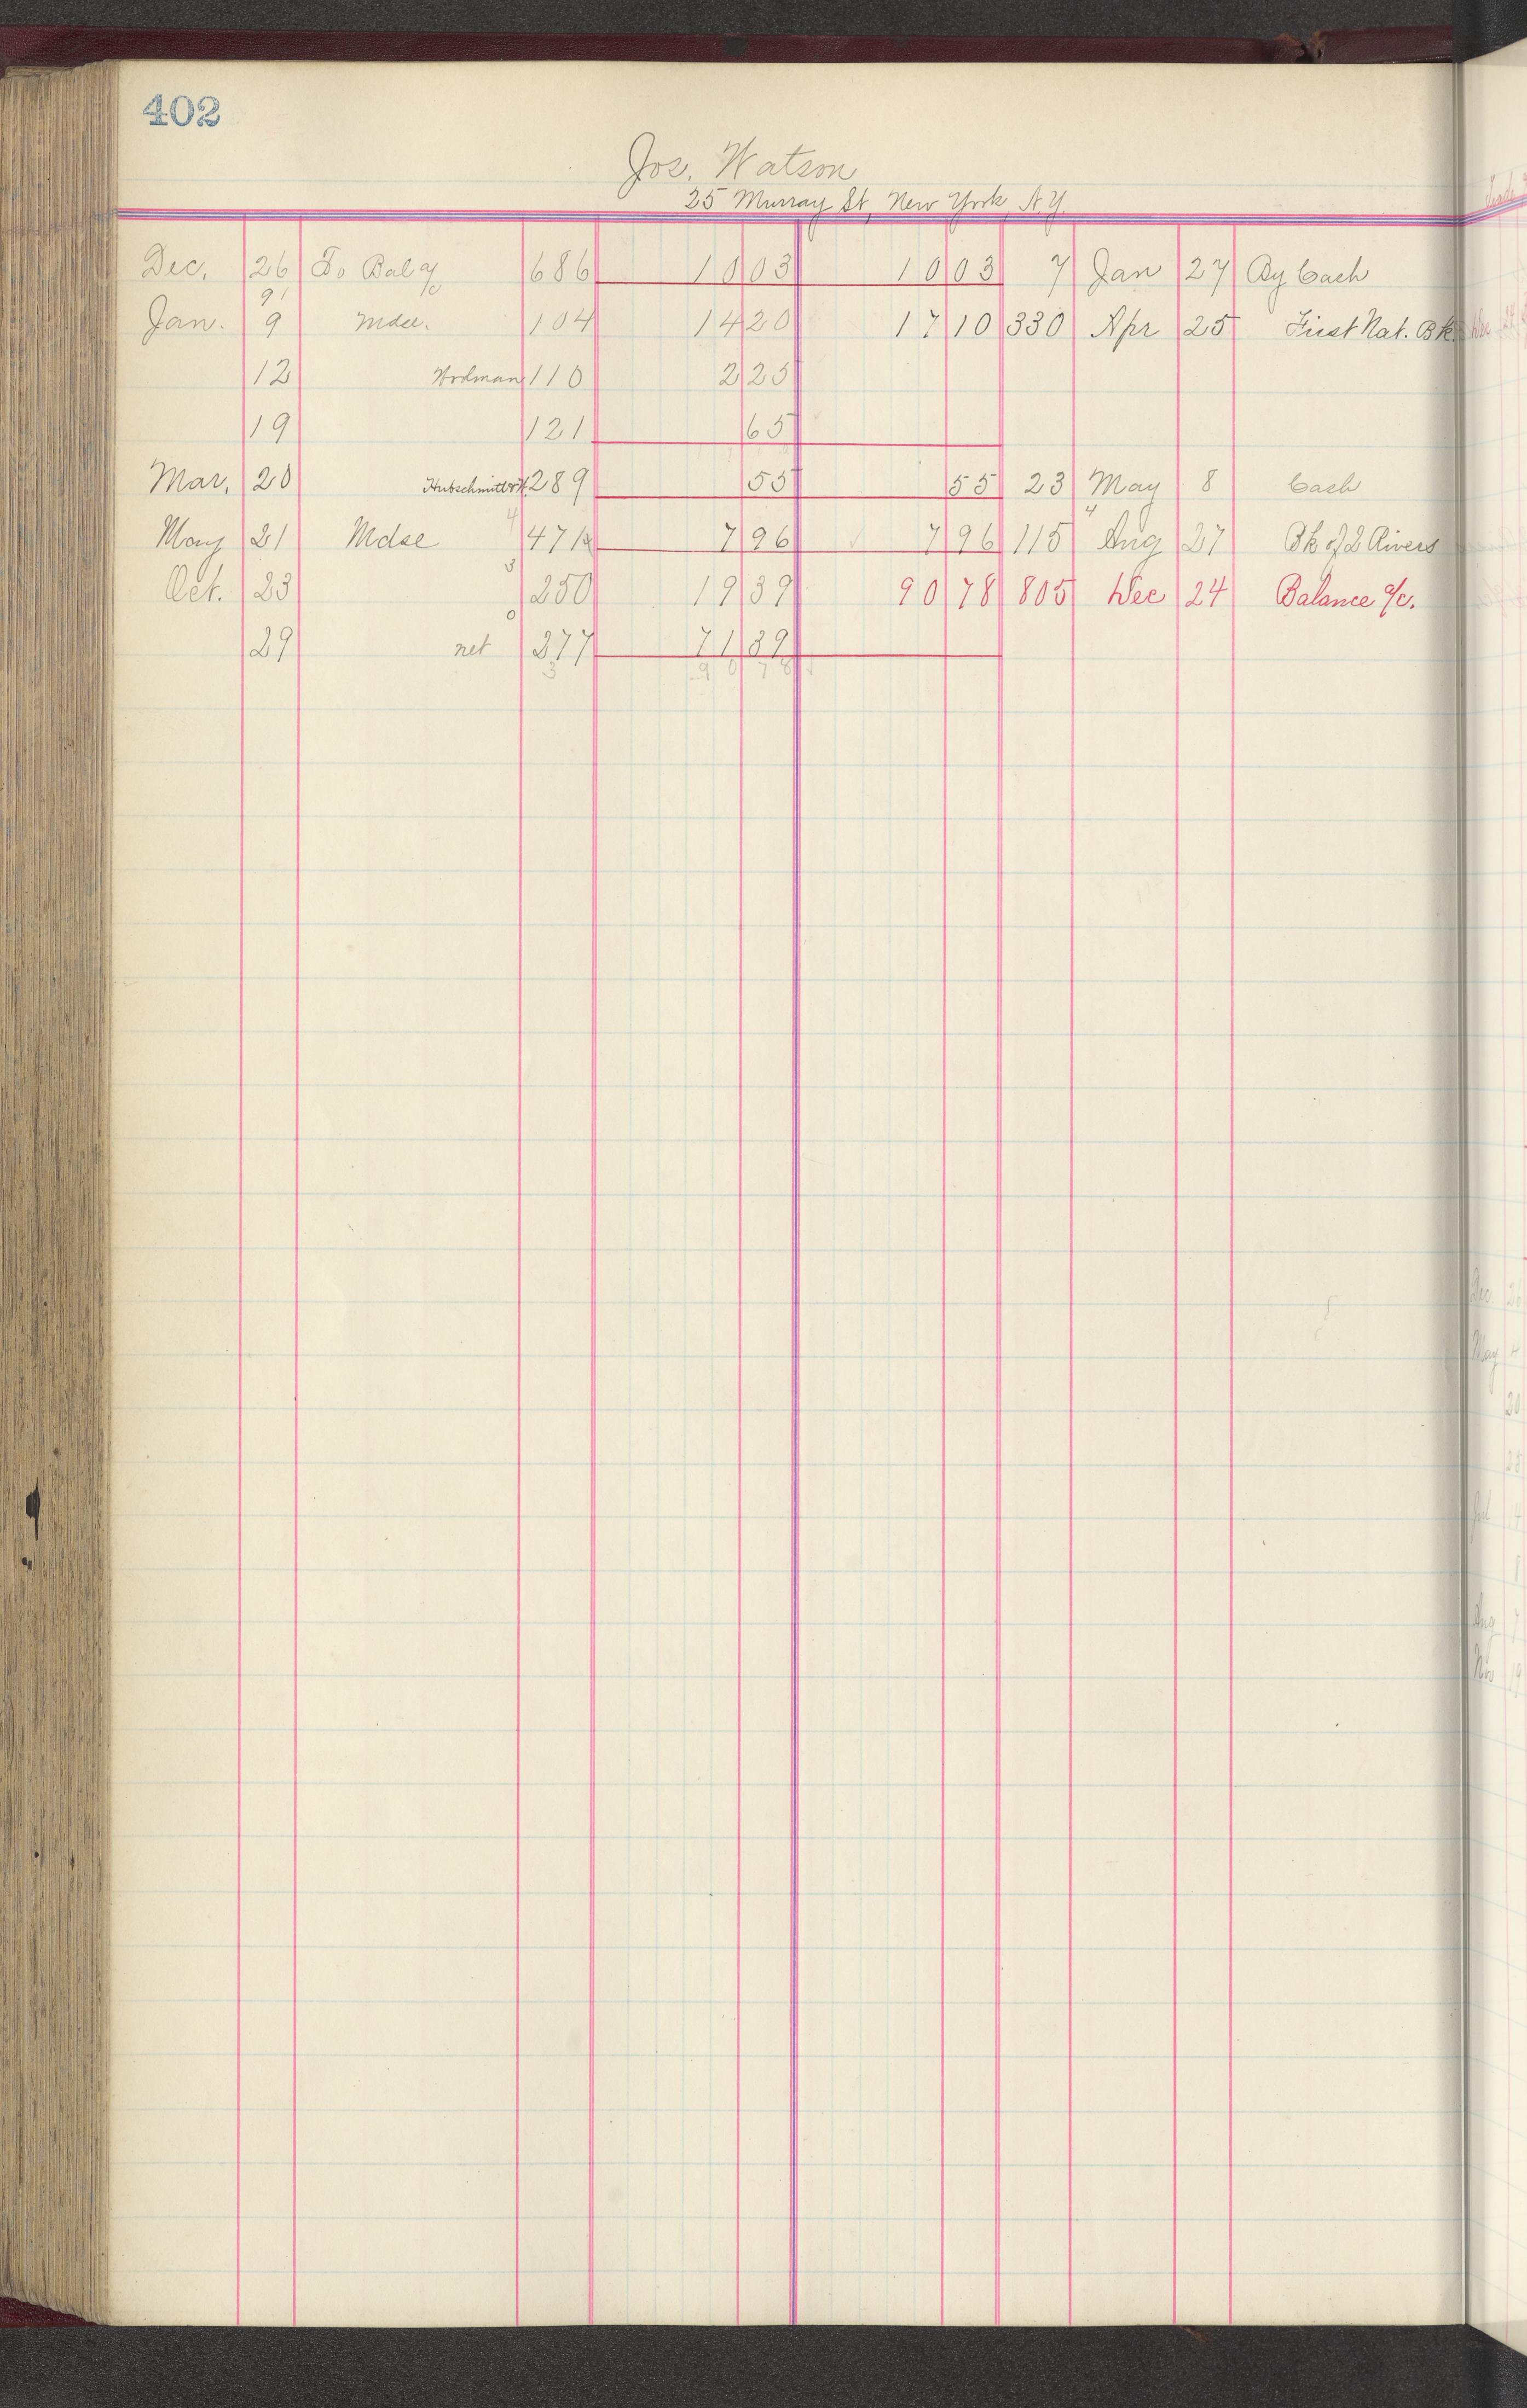 402
Jos. Watson
25 Murray St, New York, N.Y.
Dec. 26 To Bal a/c 686 10 03 10 03 7 Jan 27 By Cash
91
Jan. 9 Mdse. 104 14 20 17 10 330 Apr 25 First Nat. Bk.
12 110 2 25
19 121 65
Mar. 20 289 55 55 23 May 8 Cash
4 4
May 21 Mdse 471 7 96 7 96 115 Aug 27 Bk of 2 Rivers
3
Oct. 23 250 19 39 90 78 805 Dec 24 Balance a/c.
0
29 net 277 71 39
3 90 78